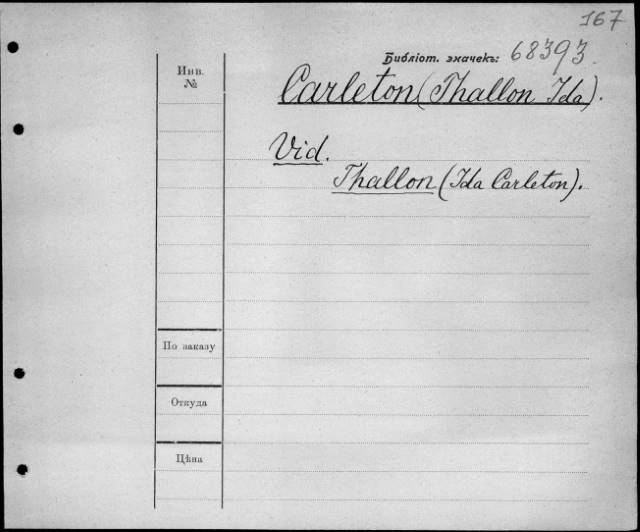 167
Библіот. значекъ: 68393.
Инв.
№
Carleton (Thallon Ida).
Vid.
Thallon (Ida Carleton).
По заказу
Откуда
Цѣна